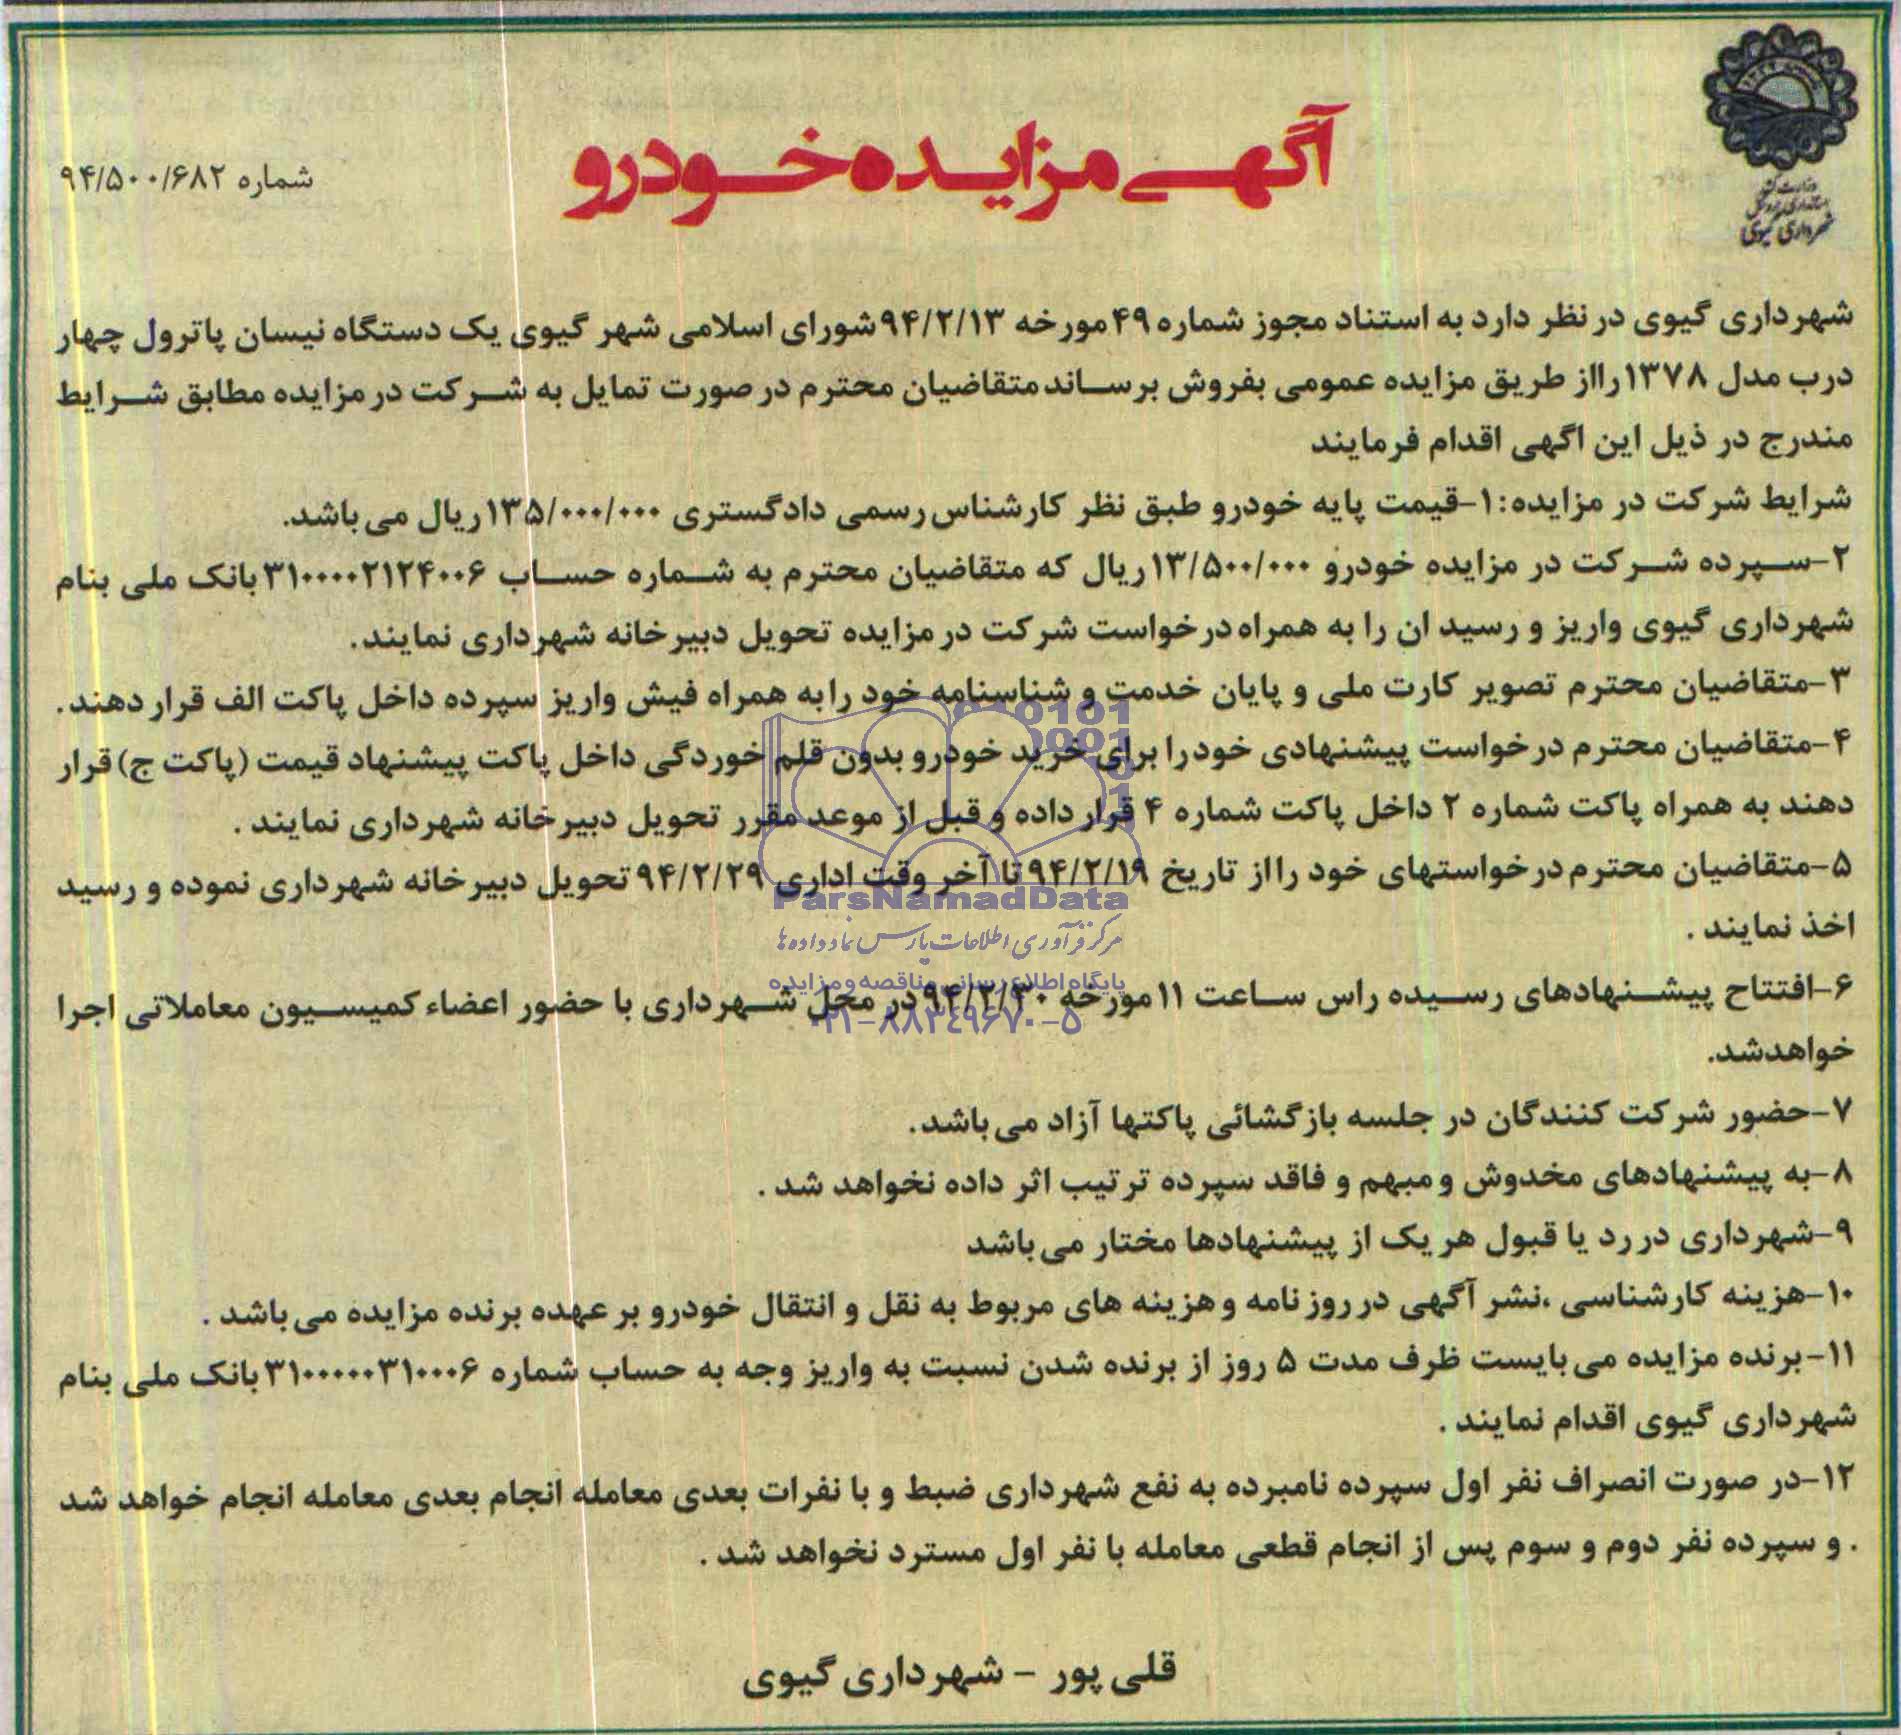 وزارت کشور
استانداری اردبیل
شهرداری گیوی
آگهی مزایده خودرو
شماره ۹۴/۵۰۰/۶۸۲
شهرداری گیوی در نظر دارد به استناد مجوز شماره ۴۹مورخه ۹۴/۲/۱۳شورای اسلامی شهر گیوی یک دستگاه نیسان پاترول چهار
درب مدل ۱۳۷۸رااز طریق مزایده عمومی بفروش برساند متقاضیان محترم در صورت تمایل به شرکت در مزایده مطابق شرایط
مندرج در ذیل این اگهی اقدام فرمایند
شرایط شرکت در مزایده:۱-قیمت پایه خودرو طبق نظر کارشناس رسمی دادگستری ۱۳۵/۰۰۰/۰۰۰ریال می باشد.
۲-سپرده شرکت در مزایده خودرو ۱۳/۵۰۰/۰۰۰ریال که متقاضیان محترم به شماره حساب ۳۱۰۰۰۰۲۱۲۴۰۰۶بانک ملی بنام
شهرداری گیوی واریز و رسید ان را به همراه درخواست شرکت در مزایده تحویل دبیرخانه شهرداری نمایند.
۳-متقاضیان محترم تصویر کارت ملی و پایان خدمت و شناسنامه خود رابه همراه فیش واریز سپرده داخل پاکت الف قرار دهند.
۴-متقاضیان محترم درخواست پیشنهادی خودرا برای خرید خودرو بدون قلم خوردگی داخل پاکت پیشنهاد قیمت (پاکت ج) قرار
دهند به همراه پاکت شماره ۲ داخل پاکت شماره ۴ قرار داده و قبل از موعد مقرر تحویل دبیرخانه شهرداری نمایند .
۵-متقاضیان محترم درخواستهای خود رااز تاریخ ۹۴/۲/۱۹تا آخر وقت اداری ۹۴/۲/۲۹تحویل دبیرخانه شهرداری نموده و رسید
ParsNamadData
اخذ نمایند .
مرکز فرآوری اطلاعات پارس نماد داده ها
پایگاه اطلاع رسانی مناقصه و مزایده
۶-افتتاح پیشنهادهای رسیده راس ساعت ۱۱مورخه ۹۴/۲/۳۰در محل شهرداری با حضور اعضاء کمیسیون معاملاتی اجرا
۰۲۱-۸۸۳۴۹۶۷۰-۵
خواهدشد.
۷-حضور شرکت کنندگان در جلسه بازگشائی پاکتها آزاد می باشد.
۸-به پیشنهادهای مخدوش و مبهم و فاقد سپرده ترتیب اثر داده نخواهد شد .
۹-شهرداری در رد یا قبول هر یک از پیشنهادها مختار می باشد
۱۰-هزینه کارشناسی ،نشر آگهی در روزنامه و هزینه های مربوط به نقل و انتقال خودرو بر عهده برنده مزایده می باشد .
۱۱-برنده مزایده می بایست ظرف مدت ۵ روز از برنده شدن نسبت به واریز وجه به حساب شماره ۳۱۰۰۰۰۰۳۱۰۰۰۶بانک ملی بنام
شهرداری گیوی اقدام نمایند .
۱۲-در صورت انصراف نفر اول سپرده نامبرده به نفع شهرداری ضبط و با نفرات بعدی معامله انجام بعدی معامله انجام خواهد شد
. و سپرده نفر دوم و سوم پس از انجام قطعی معامله با نفر اول مسترد نخواهد شد .
قلی پور - شهرداری گیوی